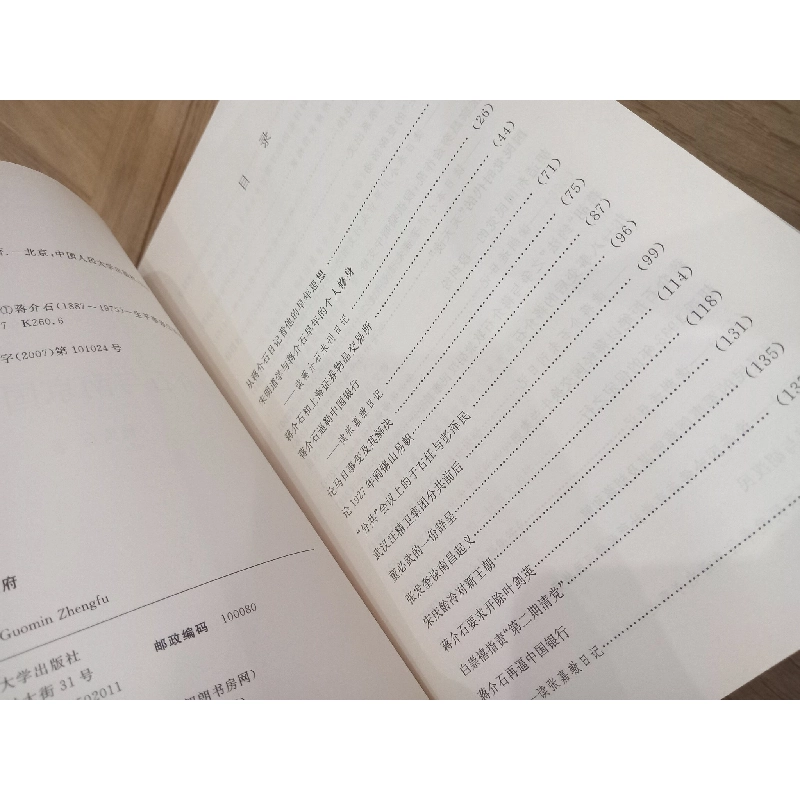 北京:中国人民大学出版社
①蒋介石(1887~1975)
7 K260.6
字(2007)第101024号
府
Guomin Zhengfu
大学出版社
大街31号
邮政编码 100080
502011
朗书房网)
目 录
从蒋介石日记看他的早年思想
(26)
宋明道学与蒋介石早年的个人修身
——读蒋介石未刊日记 (44)
蒋介石和上海证券物品交易所 (71)
蒋介石逼勒中国银行
——读张嘉璈日记 (75)
论马日事变及其解决 (87)
论1927年阎锡山易帜 (96)
“分共”会议上的于右任与彭泽民 (99)
武汉汪精卫集团分共前后 (114)
董必武的一份辞呈 (118)
张发奎谈南昌起义 (131)
宋庆龄冷对靳王朝 (135)
蒋介石要求开除叶剑英
白崇禧指责“第二期清党”
蒋介石再逼中国银行
——读张嘉璈日记